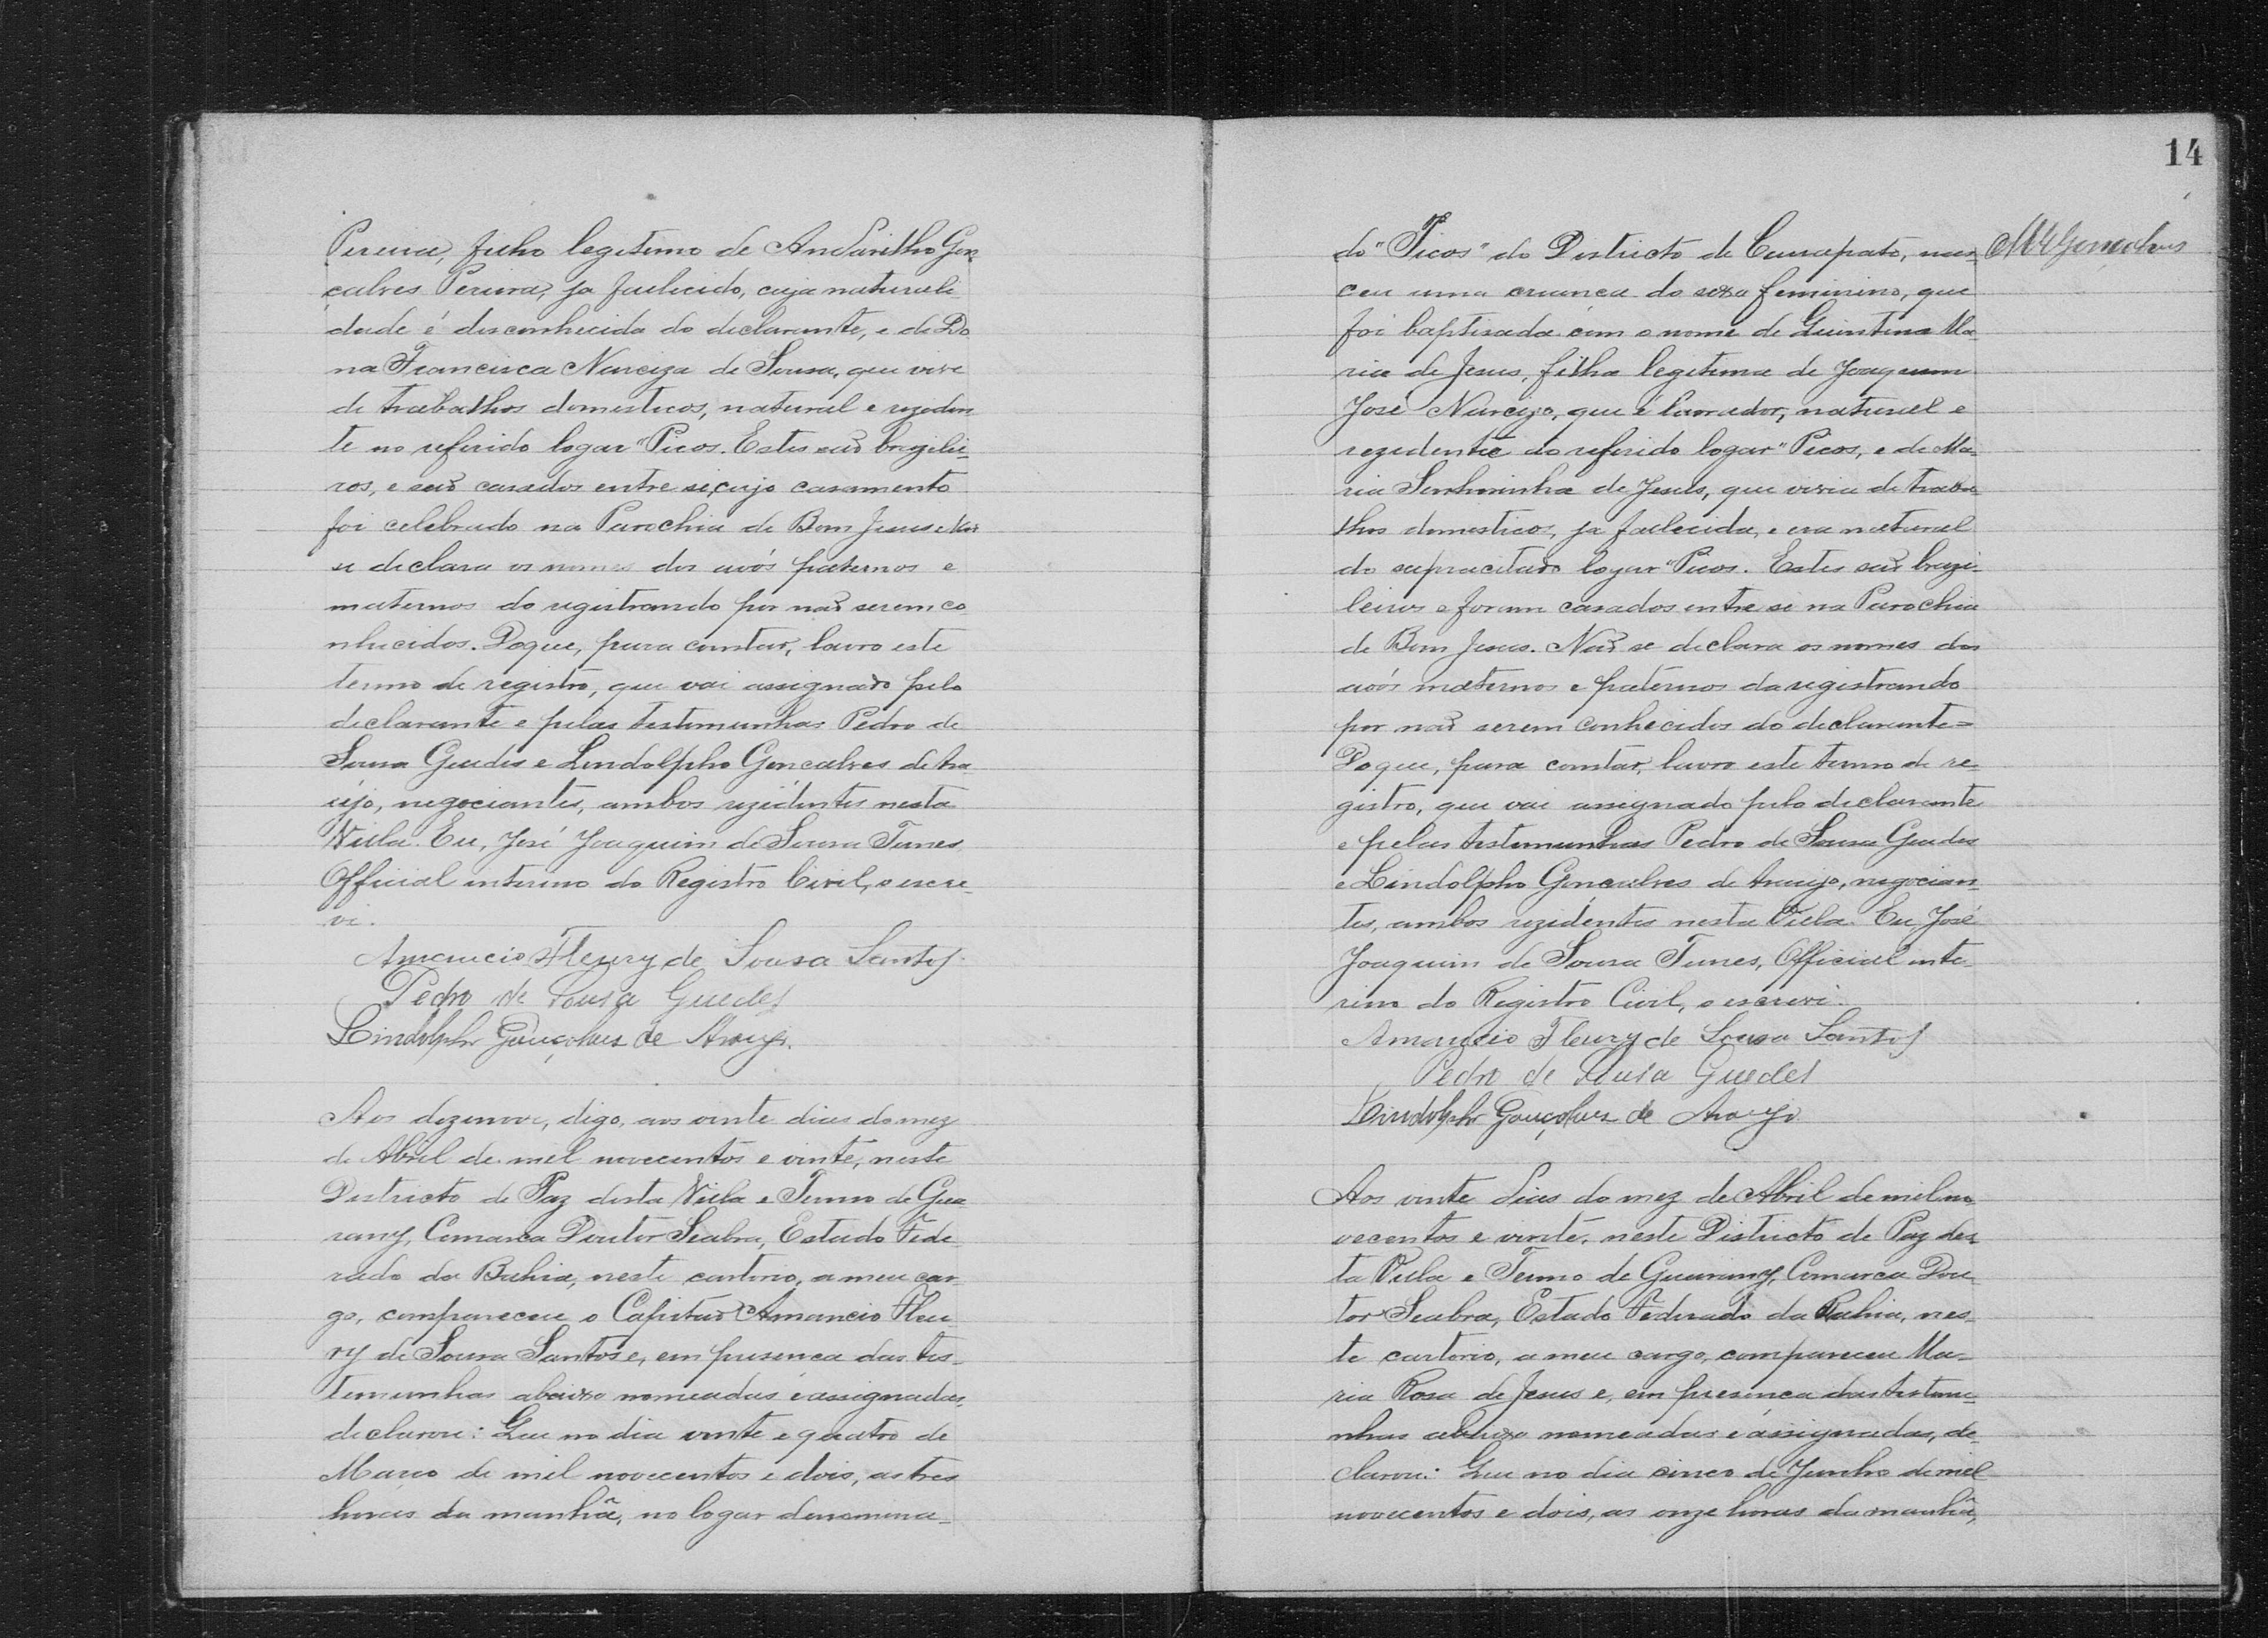 Pereira, filho legitimo de Gon
çalves Pereira, ja fallecido, cuja naturali
dade é desconhecida do declarante, e de Do
na Francisca Narciza de Sousa, que vive
de trabalhos domesticos, natural e reziden
te no referido logar "Picos. Estes são brazilei-
ros, e são casados entre si, cujo casamento
foi celebrado na Parochia de Bom Jesus e Não
se declara os nomes dos avós paternos e
maternos do registrando por não serem co
nhecidos. Doque, para constar, lavro este
termo de registro, que vai assignado pelo
declarante e pelas testimunhas Pedro de
Sousa Guedes e Lindolpho Goncalves de Ara
újo, negociantes, ambos rezidentes nesta
Villa. Eu, José Joaquim de Sousa Tunes
Official interino do Registro Civil, o escre-
vi.
Amancio Fleury de Sousa Santos
Pedro de Sousa Guedes
Lindolpho Gonçalves de Araujo.
Aos dezenove, digo, aos vinte dias do mez
de Abril de mil novecentos e vinte, neste
Districto de Paz desta Villa e Termo de Gua
rany, Comarca Doutor Seabra, Estado Fede-
rado da Bahia, neste cartorio, a meu car-
go, compareceu o Capitão Amancio Fleu
ry de Sousa Santos e, em presenca das tes-
temunhas abaixo nomeadas e assignadas,
declarou: Que no dia vinte e quatro de
Março de mil novecentos e dois, as tres
horas da manhã, no logar denomina-
14
do "Picos" do Districto de Carrapato, nas-
ceu uma criança do sexo feminino, que
foi baptisada com o nome de Quintina Ma-
ria de Jesus, filha legitima de Joaquim
José Narcizo, que é lavrador, natural e
rezidente do referido logar "Picos, e de Ma-
ria Senhorinha de Jesus, que vivia de traba-
lhos domesticos, ja fallecida, e era natural
do supracitado logar "Picos. Estes são brazi-
leiros e foram casados entre si na Parochia
de Bom Jesus. Não se declara os nomes dos
avós maternos e paternos da registrando
por não serem conhecidos do declarante=
Doque, para constar, lavro este termo de re-
gistro, que vai assignado pelo declarante
e pelas testemunhas Pedro de Sousa Guedes
e Lindolpho Gonçalves de Araujo, negocian-
tes, ambos rezidentes nesta Villa. Eu, José
Joaquim de Sousa Tunes, Official inte-
rino do Registro Civil, o escrevi.
Amancio Fleury de Sousa Santos
Pedro de Sousa Guedes
Lindolpho Gonçalves de Araujo
Aos vinte dias do mez de Abril de mil no
vecentos e vinte, neste Districto de Paz des-
ta Villa e Termo de Guarany, Comarca Dou-
tor Seabra, Estado Federado da Bahia, nes-
te cartorio, a meu cargo, compareceu Ma-
ria Rosa de Jesus e, em presença das testimu-
nhas abaixo nomeadas e assignadas, de-
clarou: Que no dia cinco de Junho de mil
novecentos e dois, as onze horas da manhã,